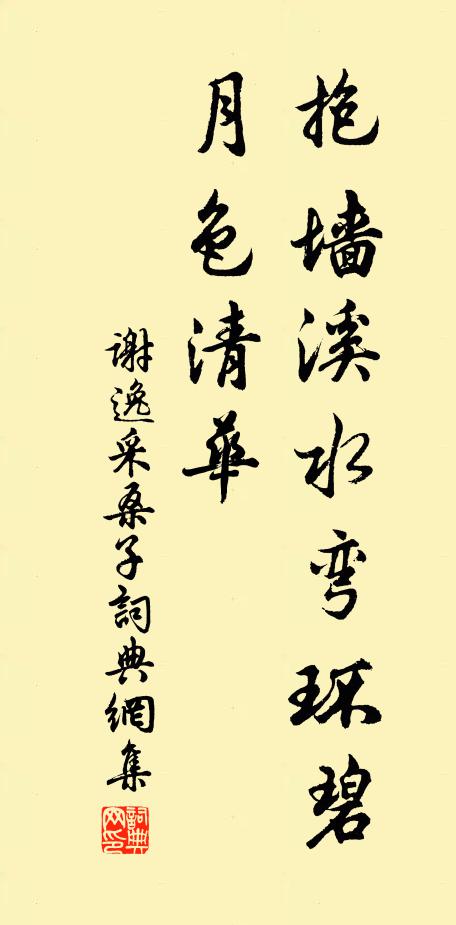 抱墙溪水弯环碧
月色清華
谢逸采桑子詞典網集
詞典网印